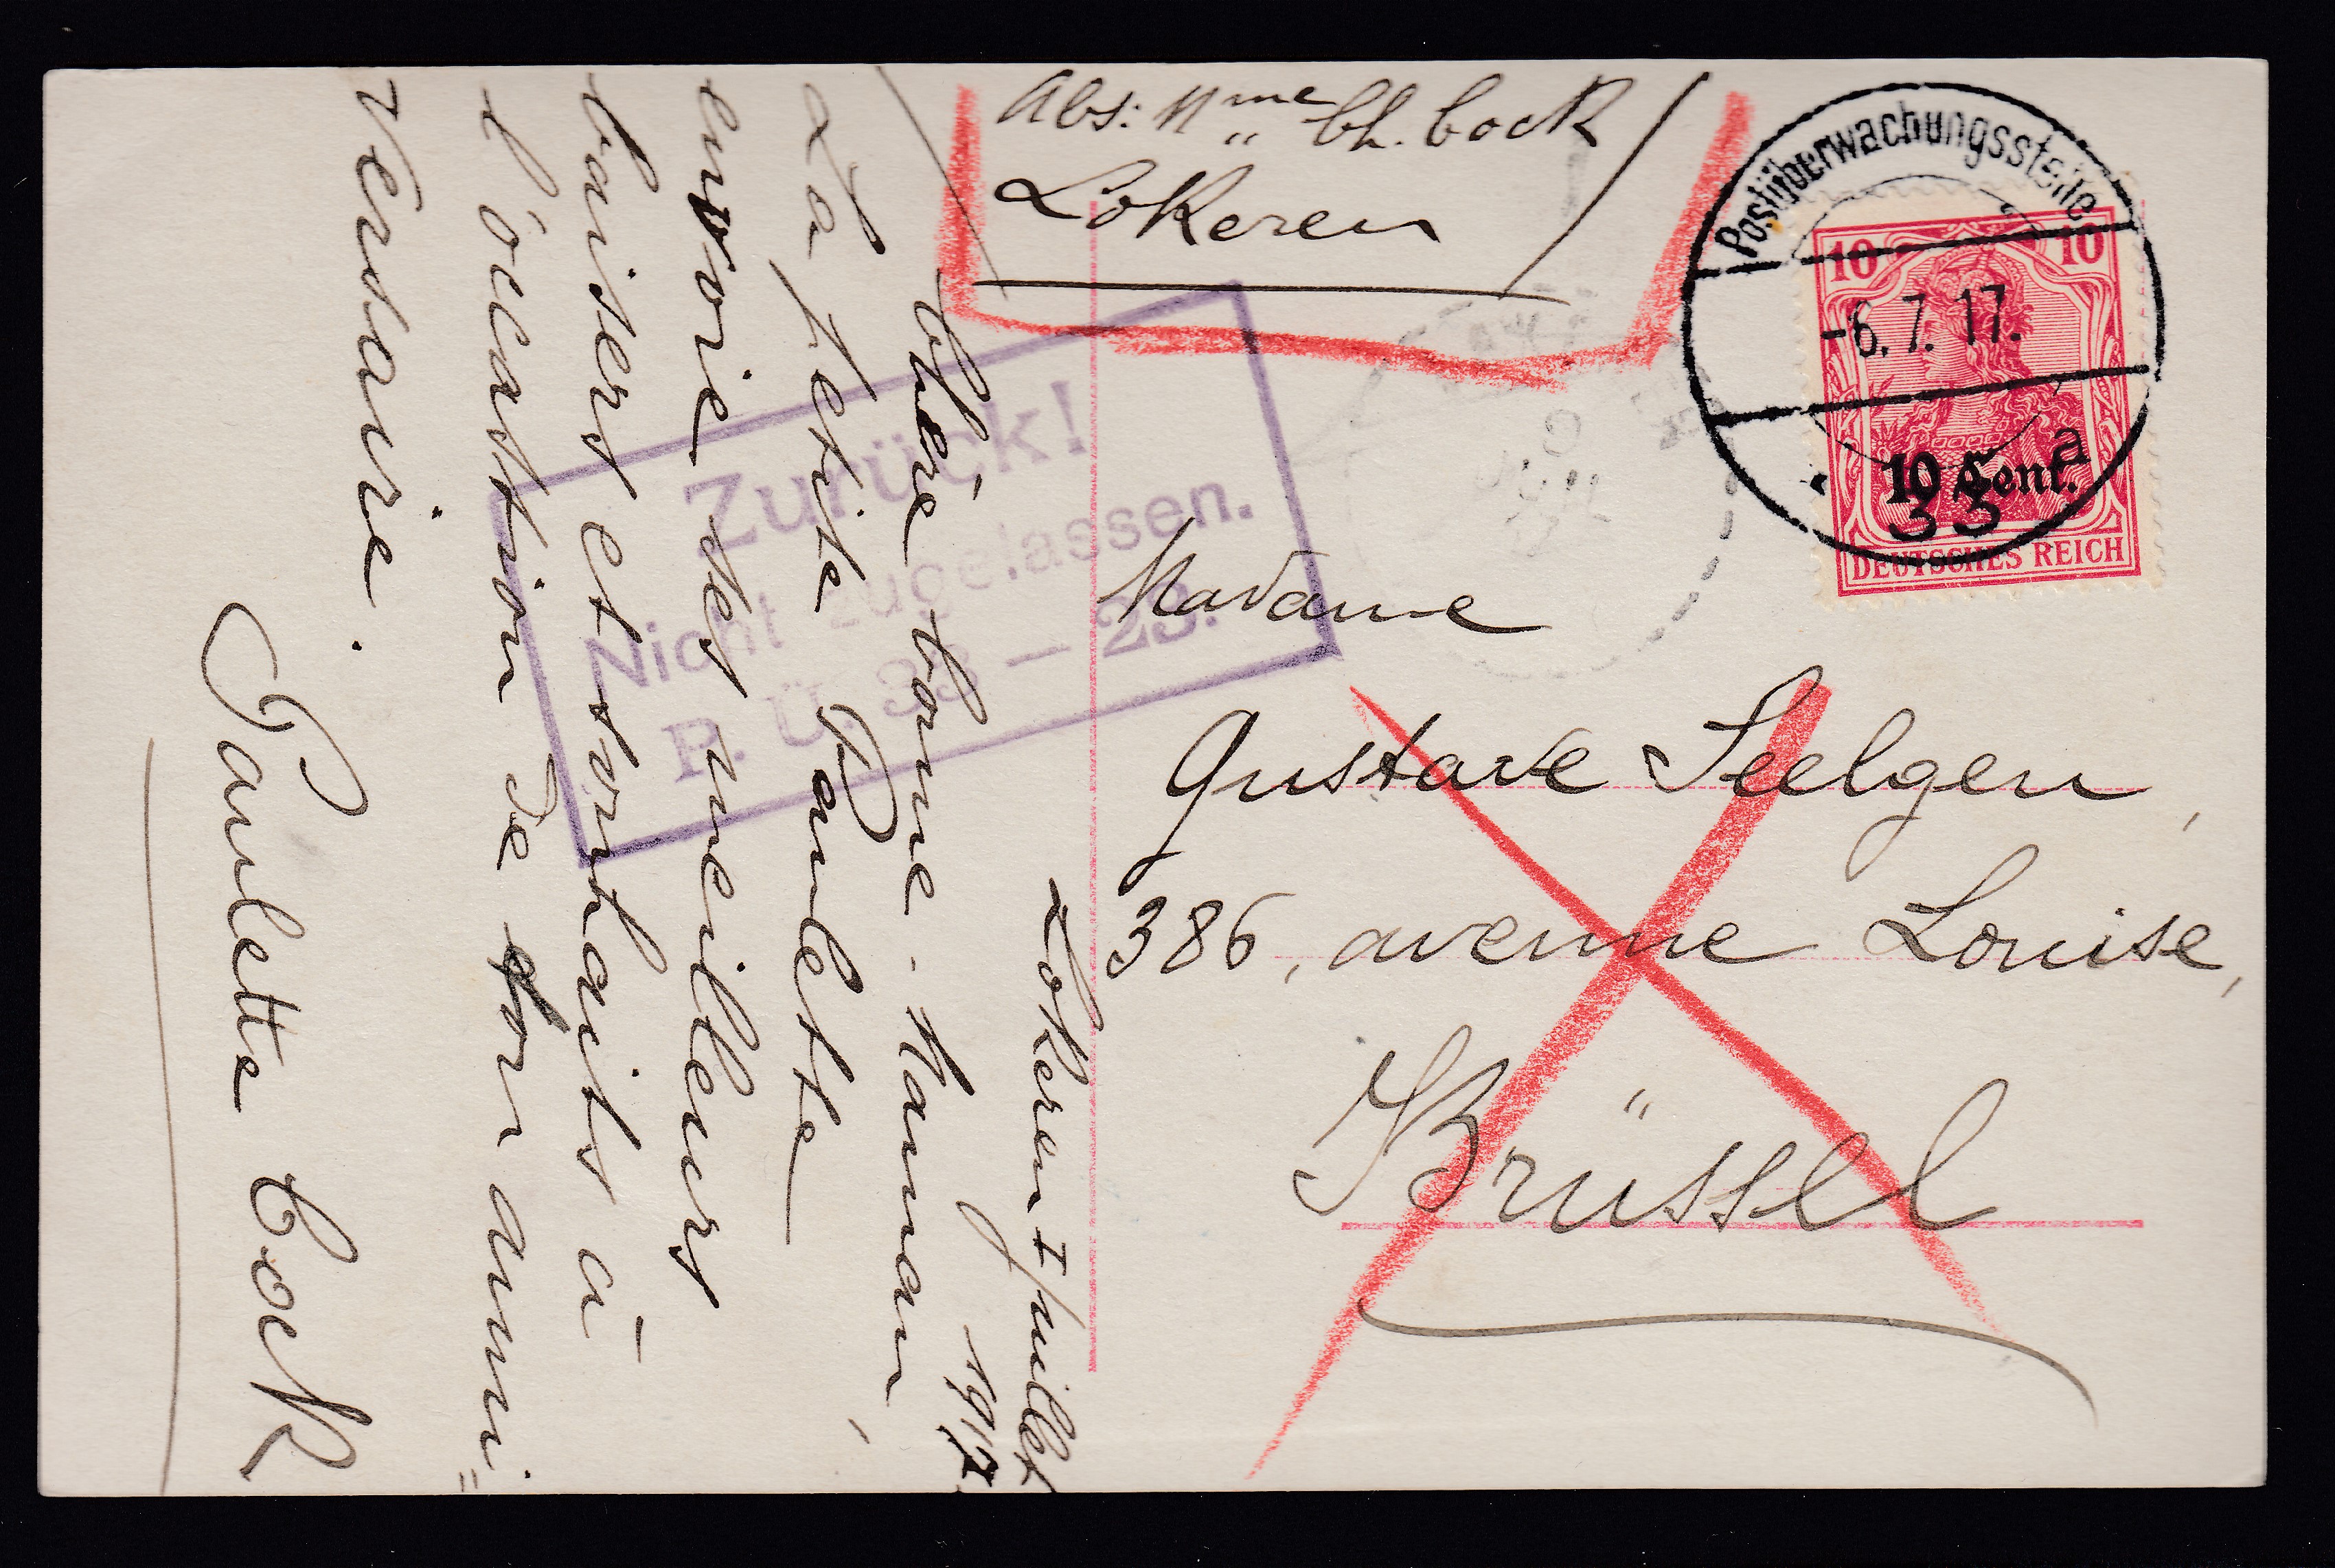 Abs: Mme Ch. Cock
Lokeren
Postüberwachungsstelle
-6.7.17.
a
33
10 10
10 Cent.
DEUTSCHES REICH
Zurück!
Nicht zugelassen.
P. Ü. 33 — 23.
Madame
Gustave Seelgen,
386, avenue Louise,
Brüssel
Lokeren 1/juillet
1917
Chère bonne-Maman,
La petite Paulette
envoie des meilleurs
baisers et souhaits à
l'occasion de ton anni=
versaire.
Paulette Cock